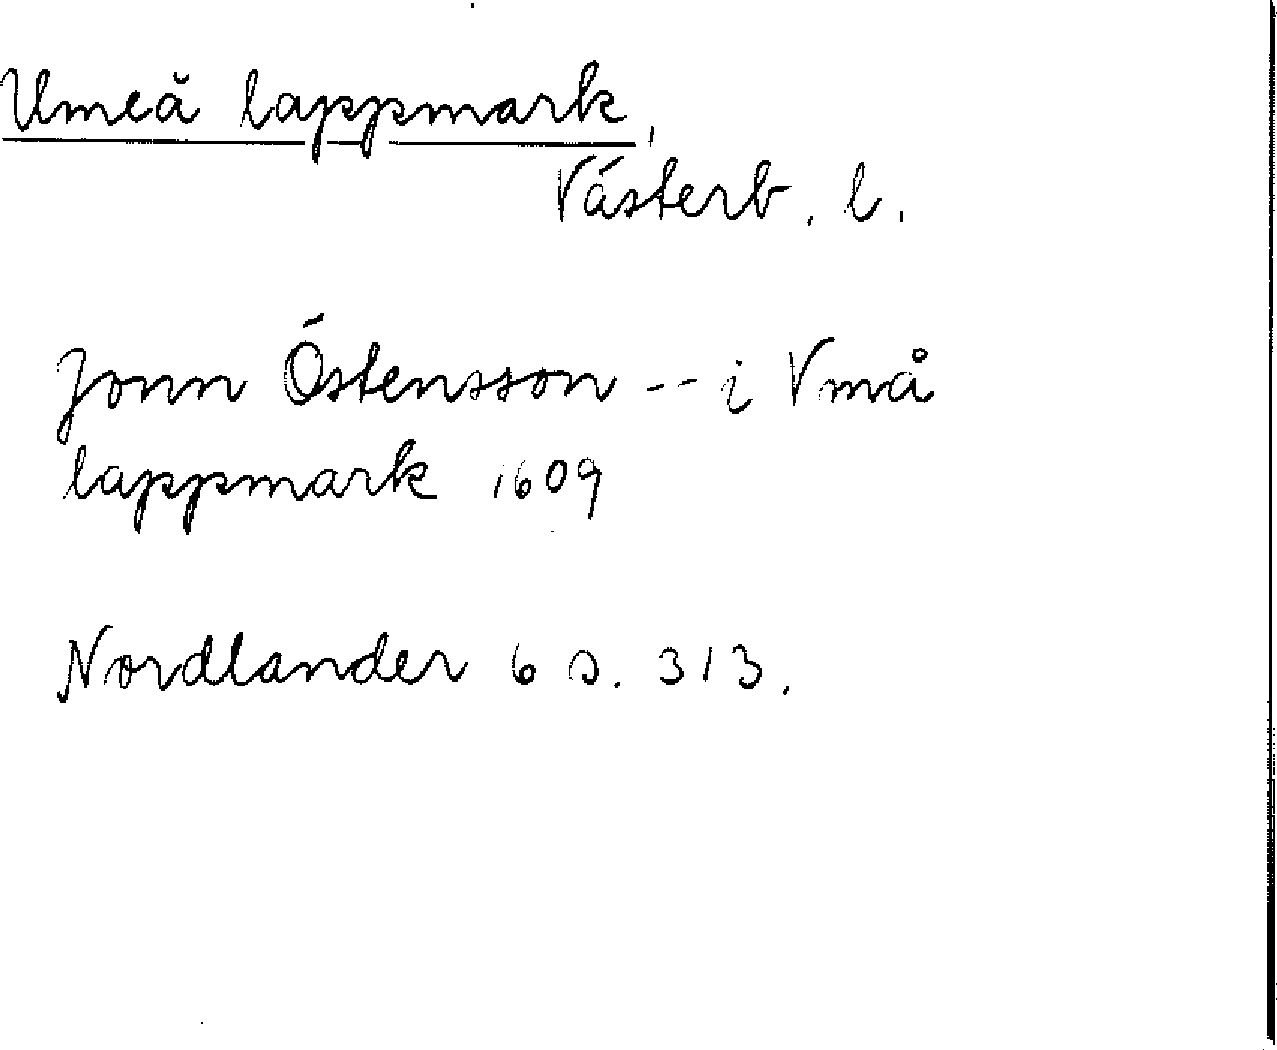 Umeå lappmark,
Västerb. l.
Jonn Östensson -- i Vmå
lappmark 1609
Nordlander 6 s. 313.